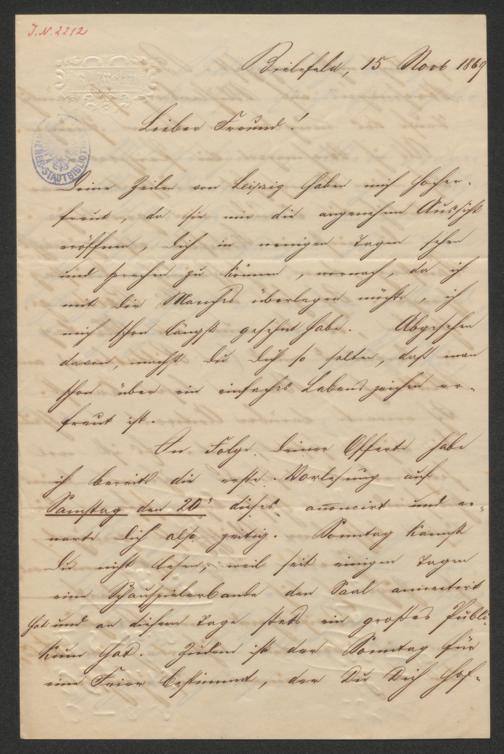 J.N. 2212
Bielefeld, 15 Novb 1869
Lieber Freund!
Deine Zeilen von Leipzig haben mich hocher-
freut, da sie mir die angenehme Aussicht
eröffnen, Dich in wenigen Tagen sehen
und sprechen zu können, wonach, da ich
mit Dir Manches überlegen möchte, ich
mich schon längst gesehnt habe. Abgesehen
davon, machst Du Dich so selten, daß man
schon über ein einfaches Lebenszeichen er-
freut ist.
In Folge Deiner Offerte habe
ich bereits die erste Vorlesung auf
Samstag den 20' dieses annoncirt und er-
warte Dich also zeitig. Sonntag kannst
Du nicht lesen, weil seit einigen Tagen
eine Schauspielerbande den Saal gemiethet
hat und an diesem Tage stets ein großes Publi-
kum hat. Zudem ist der Sonntag für
eine Feier bestimmt, der Du Dich hof-